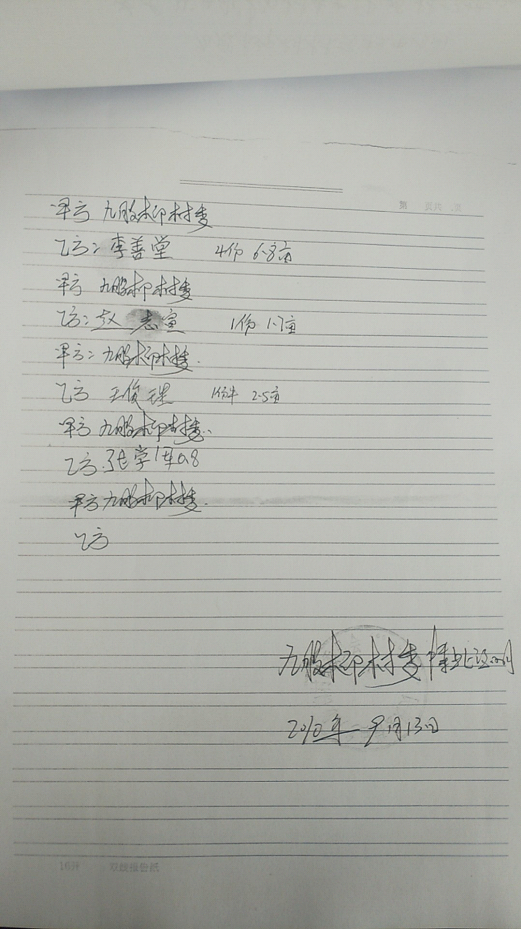 甲方 九股柳村委
乙方：李善堂 4份 6.8亩
甲方 九股柳村委
乙方：赵志宣 1份 1.7亩
甲方：九股柳村委.
乙方 王俊理 1份半 2.5亩
甲方 九股柳村委.
乙方.张学 0.8
甲方 九股柳村委.
乙方
九股柳村委 特此证明
2010年 9月13日
16开 双线报告纸